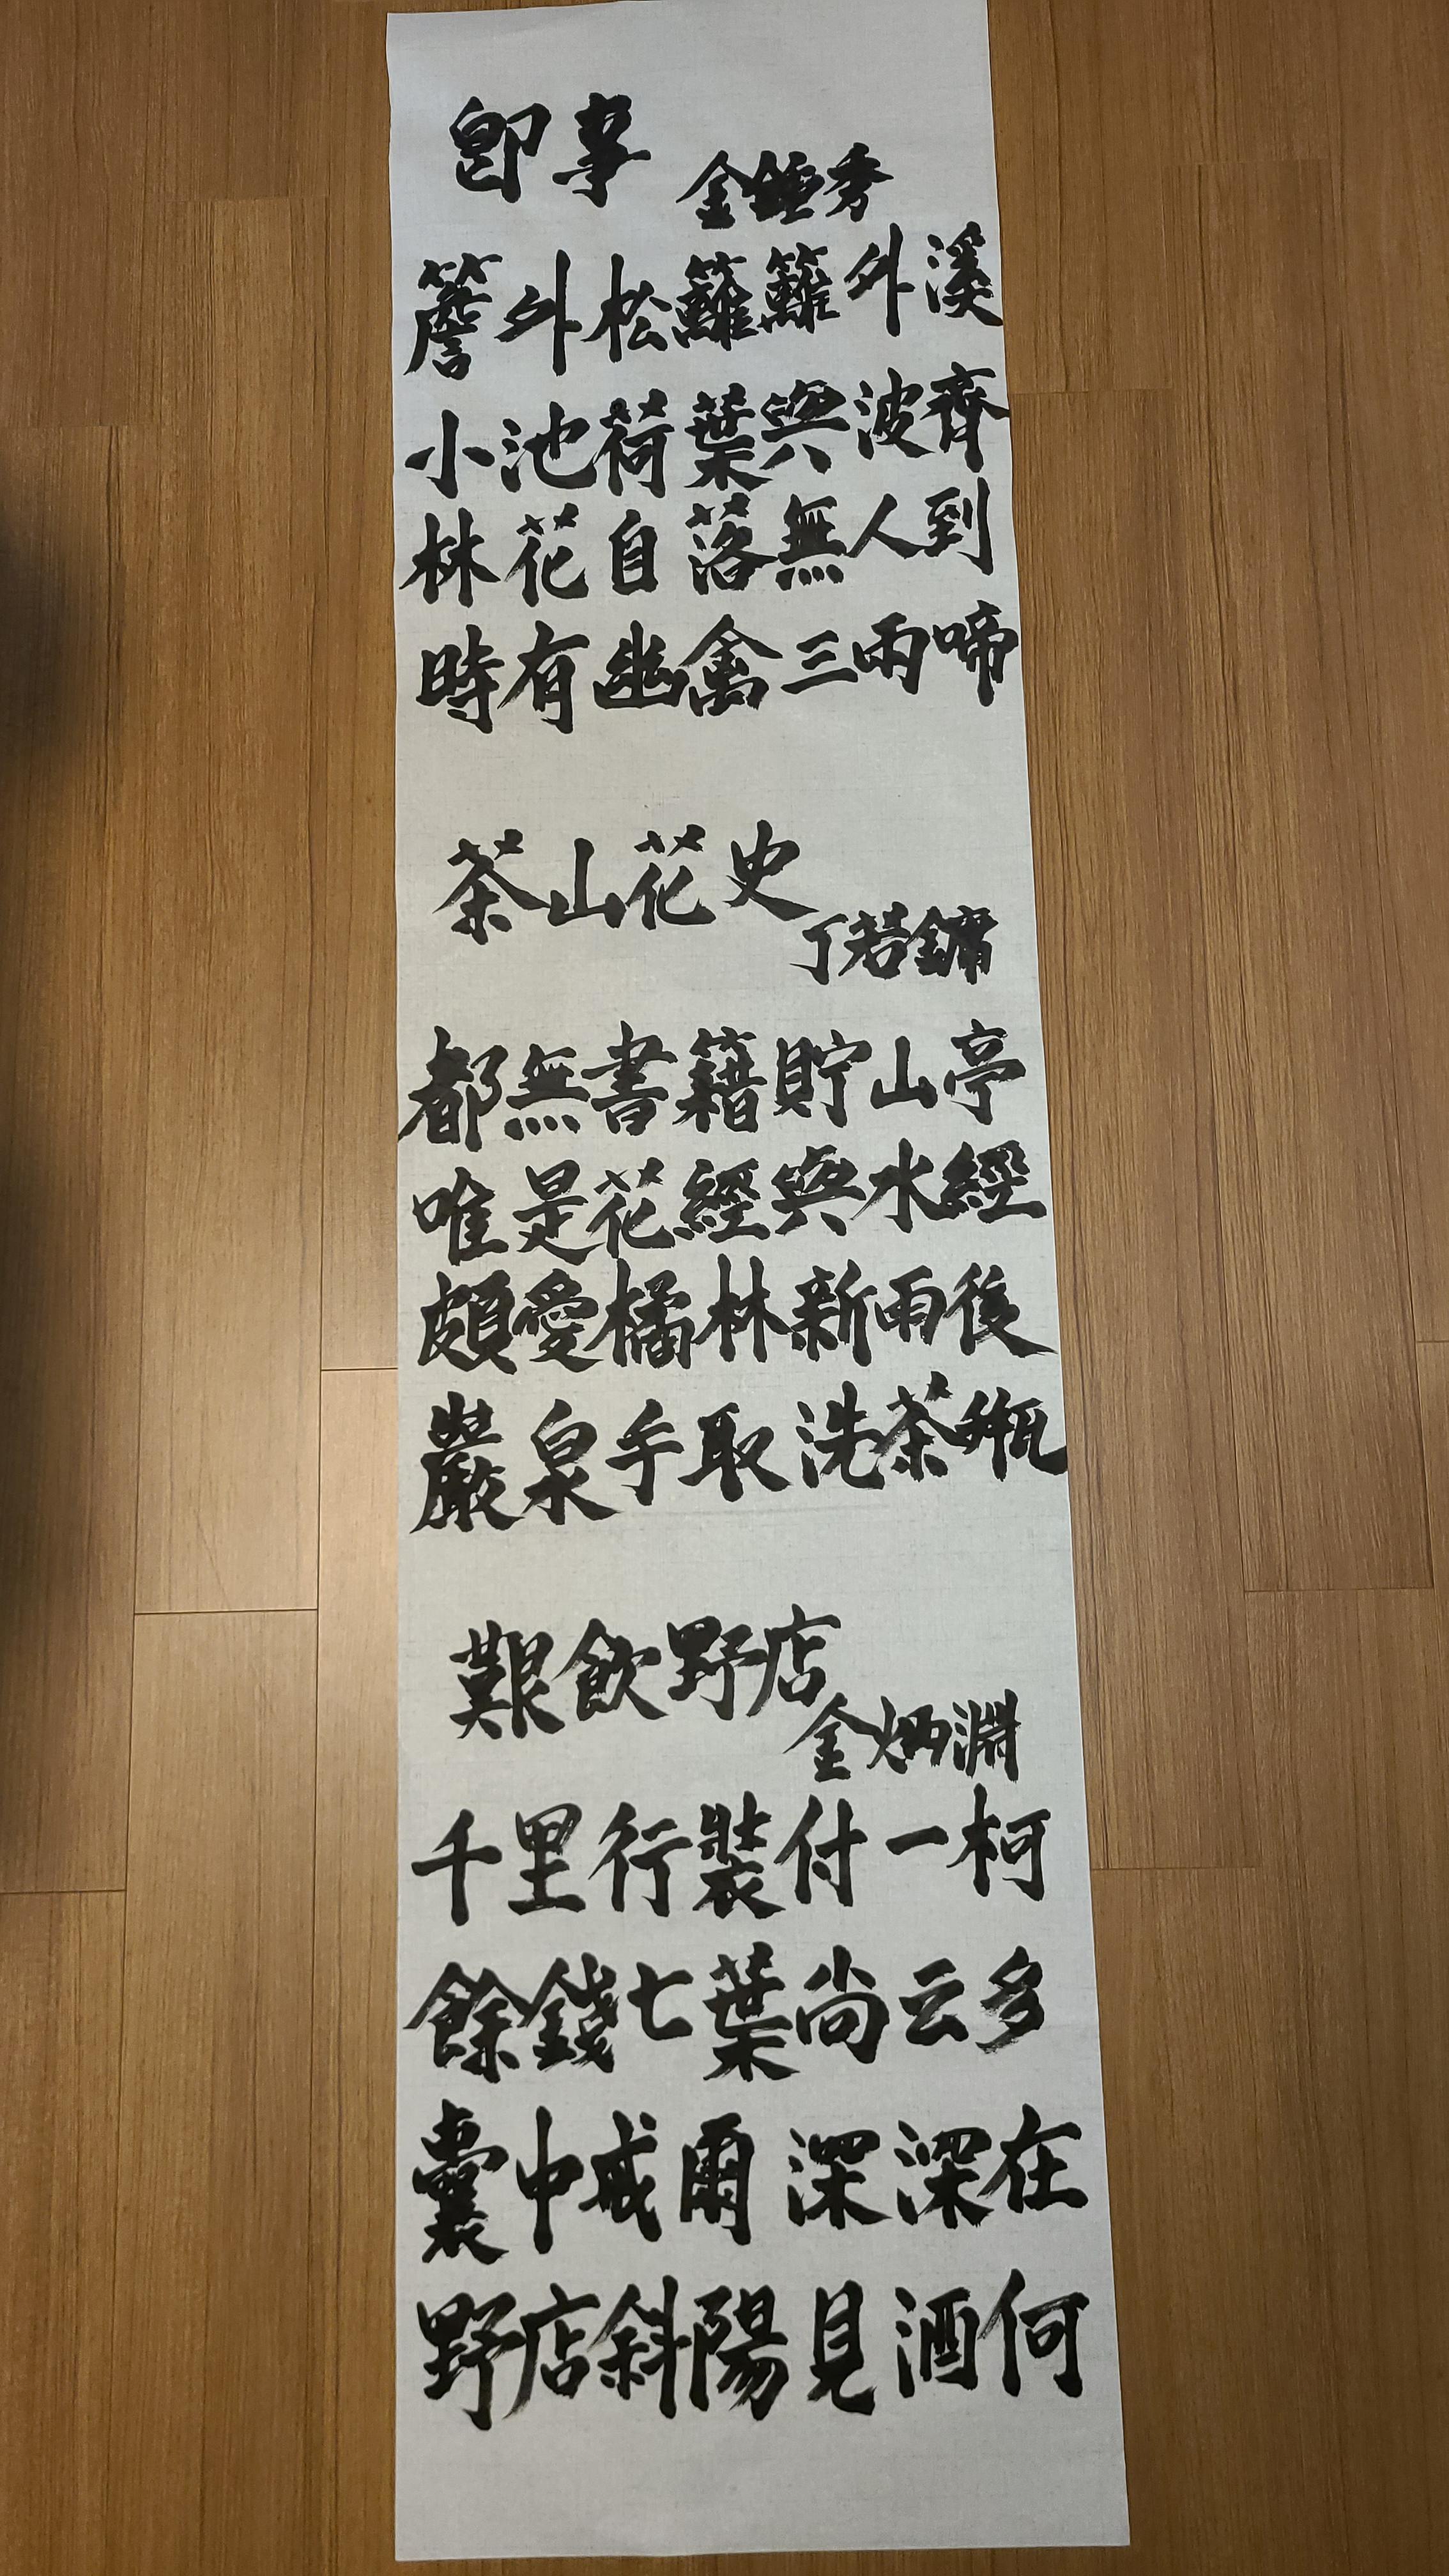 卽事
金錘秀
簷外松籬籬外溪
小池荷葉與波齊
林花自落無人到
時有幽禽三兩啼
茶山花史
丁若鏞
都無書籍貯山亭
唯是花經與水經
頗愛橘林新雨後
巖泉手取洗茶甁
艱飮野店
金炳淵
千里行裝付一柯
餘錢七葉尙云多
囊中戒爾深深在
野店斜陽見酒何